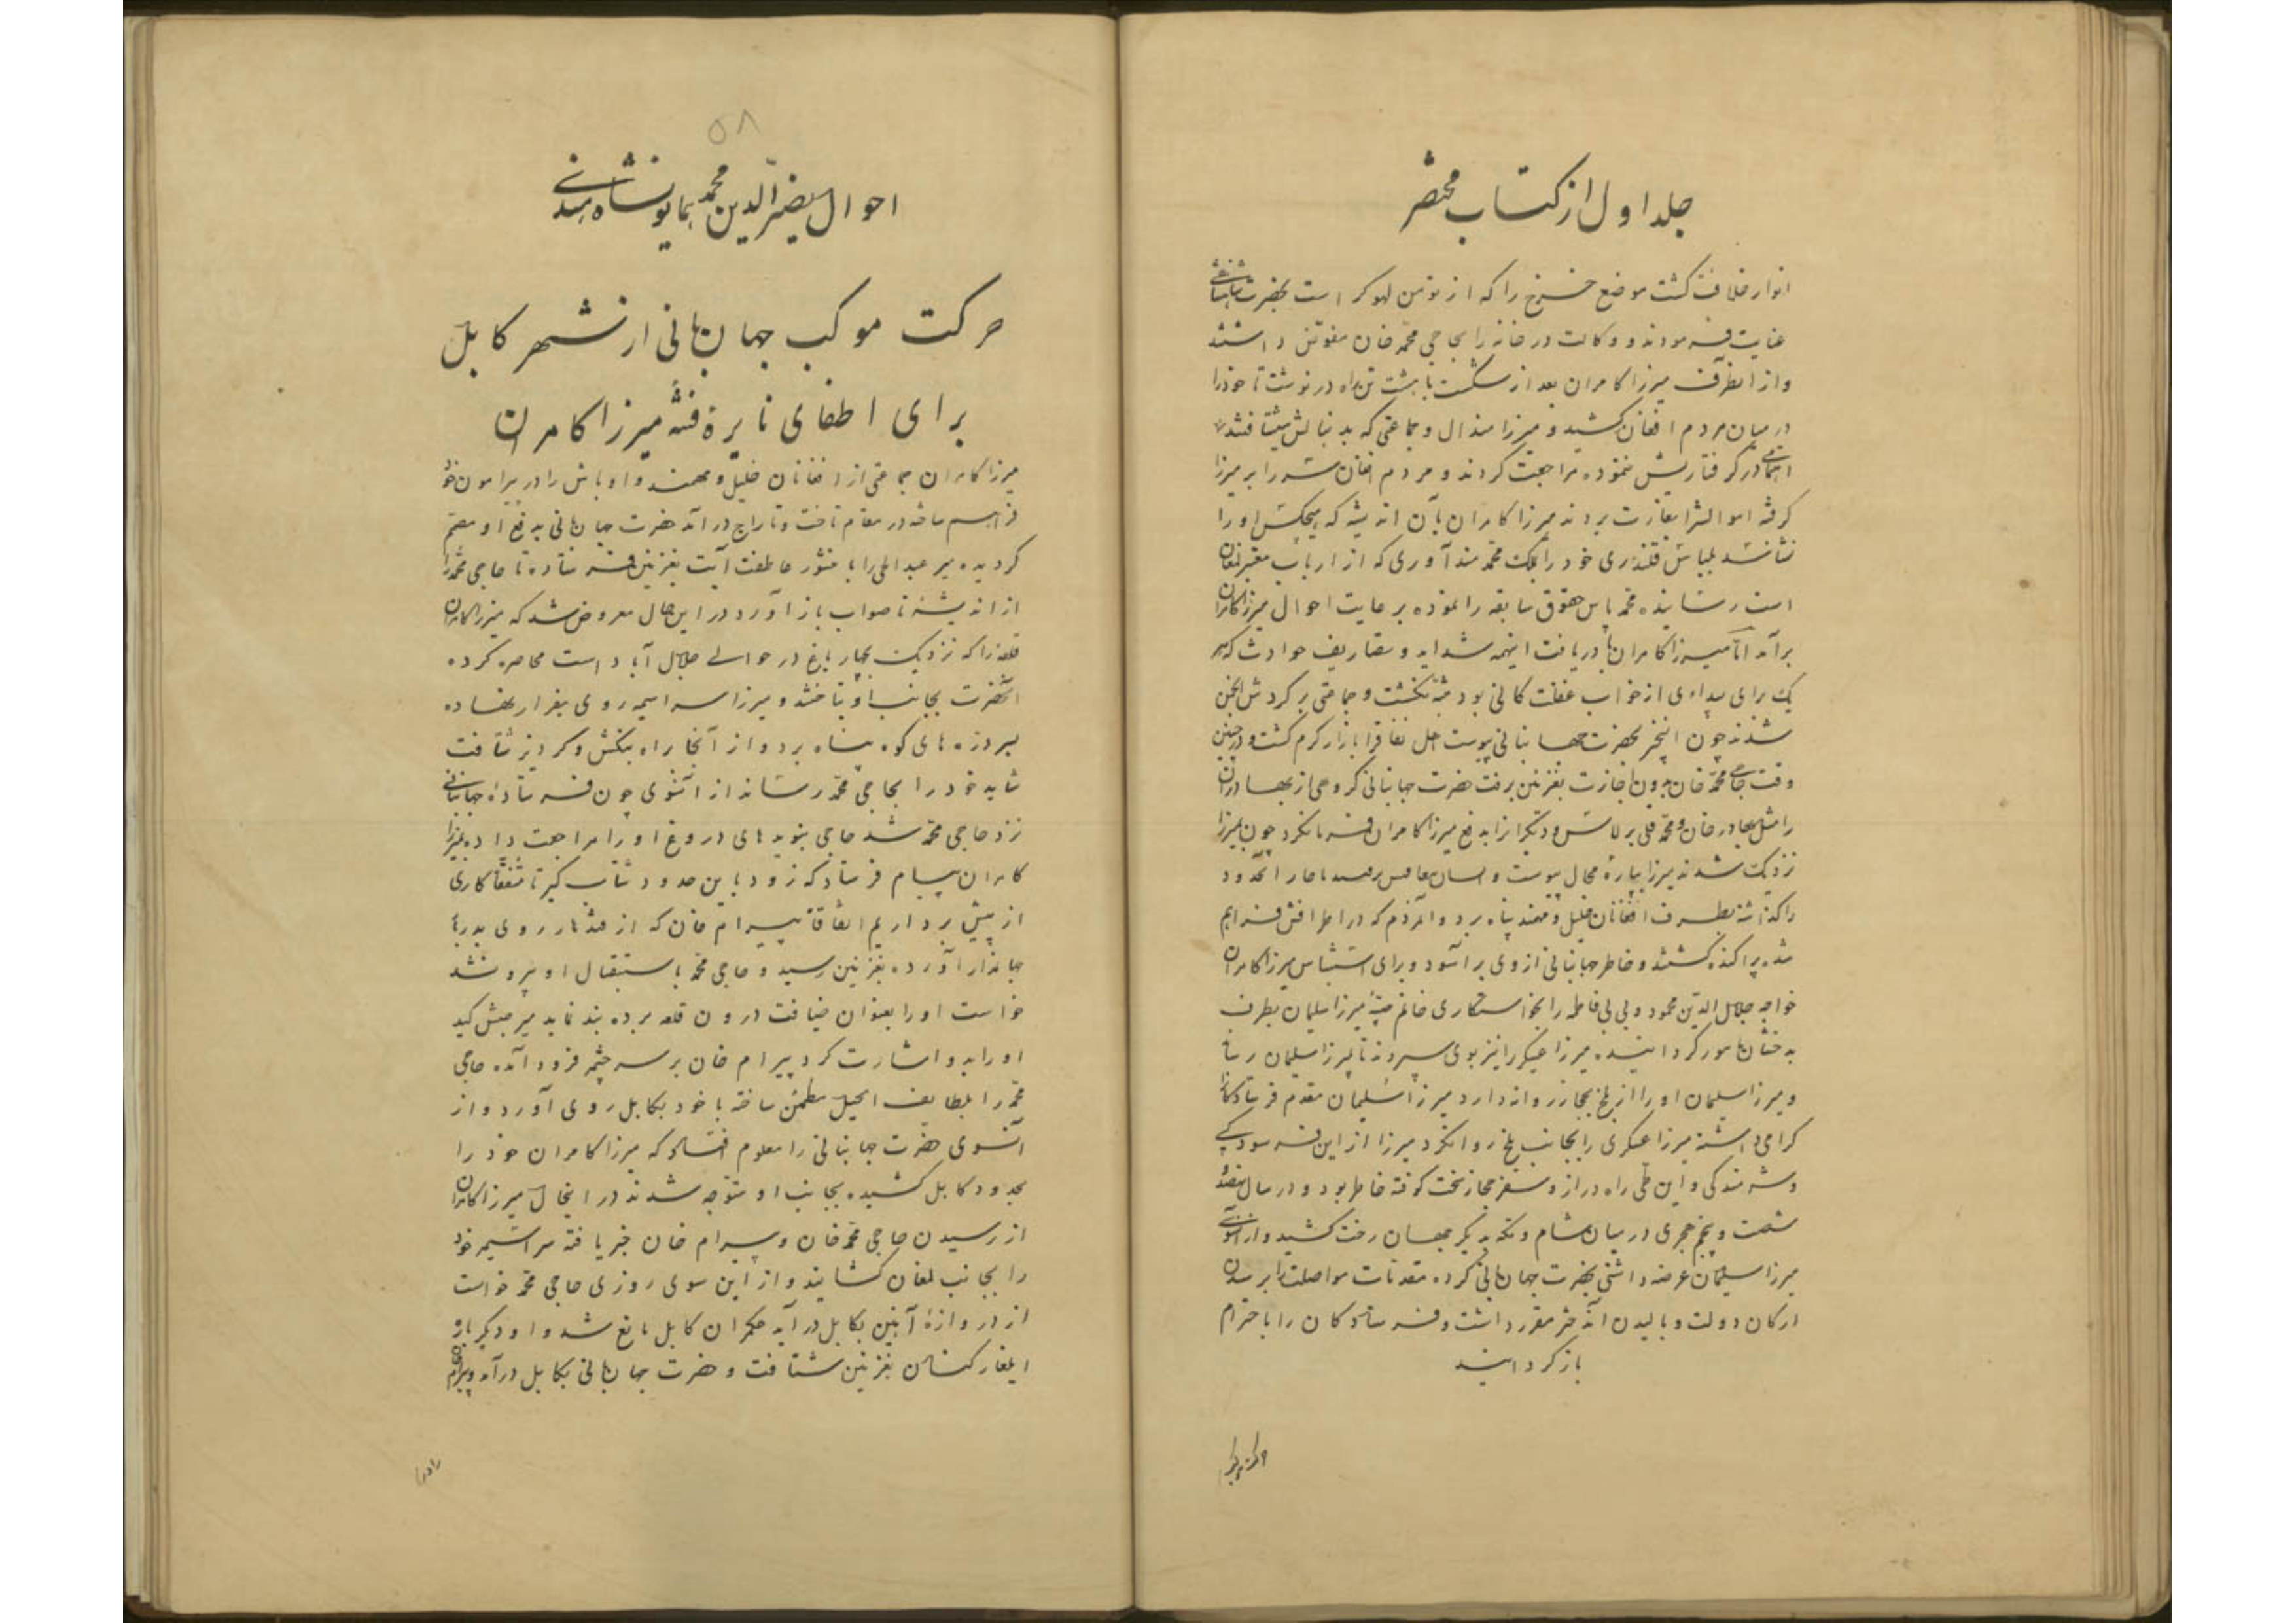 جلد اول از کتاب مختصر
انوار خلافت گشت موضع چرخ را که از تومن لهوکر است بحضرت شاهنشاهی
عنایت فرمودند و وکالت در خانه را بحاجی محمد خان مفوض داشتند
و از انطرف میرزا کامران بعد از شکست با هشت تن براه در نوشت تا خود را
در میان مردم افغان کشید و میرزا هندال و جماعتی که بدنبالش شتافتند
اهتمامی در گرفتاریش ننموده مراجعت کردند و مردم افغان سر راه بر میرزا
گرفته اموالش را بغارت بردند میرزا کامران بآن اندیشه که هیچکس او را
نشناسد بلباس قلندری خود را بملک محمد مندراوری که از ارباب معتبر لمغان
است رسانیده محمد پاس حقوق سابقه را نموده برعایت احوال میرزا کامران
برآمد اما میرزا کامران با دریافت اینهمه شداید و تصاریف حوادث که هر
یک برای بیداری از خواب غفلت کافی بود متنبه نگشت و جماعتی بر گردش انجمن
شدند چون اینخبر بحضرت جهانبانی پیوست اهل نفاق را بازار گرم گشت و در چنین
وقت حاجی محمد خان بدون اجازت بغزنین برفت حضرت جهانبانی گروهی از بهادران
را مثل بهادر خان و محمد قلی برلاس و دیگران را بدفع میرزا کامران فرمان کرد چون بمیرزا
نزدیک شدند میرزا بپاره محال پیوست و ناچار آنحدود
را گذاشته بطرف افغانان خلیل و مهمند پناه برد و آنمردم که در اطرافش فراهم
شده پراکنده گشتند و خاطر جهانبانی از وی بر آسود و برای استیناس میرزا کامران
خواجه جلال الدین محمود و بی بی فاطمه را بخواستگاری خانم صبیه میرزا سلیمان بطرف
بدخشان مامور گردانیده میرزا عسکری را نیز بوی سپردند تا بمیرزا سلیمان رساند
و میرزا سلیمان او را از بلخ بحجاز روانه دارد میرزا سلیمان مقدم فرستادگان را
گرامی داشته میرزا عسکری را بجانب بلخ روانکرد میرزا از این فرسودگی
و شرمندگی و این طی راه دراز و سفر حجاز سخت کوفته خاطر بود و در سال نهصد و
شصت و پنجم هجری در میان شام و مکه بدیگر جهان رخت کشید و از آنسوی
میرزا سلیمان عرضه داشتی بحضرت جهانبانی کرده مقدمات مواصلت را برسیدن
ارکان دولت و بالیدن آندختر مقرر داشت و فرستادگان را باحترام
باز گردانید
حرکت موکب
۵۸
احوال نصیر الدین محمد همایون شاه هندی
حرکت موکب جهانبانی از شهر کابل
برای اطفای نایرهٔ فتنهٔ میرزا کامران
میرزا کامران جماعتی از افغانان خلیل و مهمند و اوباش را در پیرامون خود
فراهم ساخته در مقام تاخت و تاراج درآمد حضرت جهانبانی بدفع او مصمم
گردیده میر عبدالحی را با منشور عاطفت آیت بغزنین فرستاده تا حاجی محمد را
از اندیشهٔ ناصواب باز آورد در این حال معروض شد که میرزا کامران
قلعه را که نزدیک بچار باغ در حوالی جلال آباد است محاصره کرده
آنحضرت بجانب او بتاختند و میرزا سراسیمه روی بفرار نهاده
بدرزه های کوه پناه برد و از آنجا راه بنکش و کردیز شتافت
شاید خود را بحاجی محمد رساند از آنسوی چون فرستاده جهانبانی
نزد حاجی محمد شد حاجی بنوید های دروغ او را مراجعت داده بمیرزا
کامران پیام فرستاد که زود باین حدود شتاب گیر تا متفقا کاری
از پیش برداریم اتفاقا بیرام خان که از قندهار روی بدربار
جهاندار آورده بغزنین رسید و حاجی محمد باستقبال او بیرون شد
خواست او را بعنوان ضیافت درون قلعه برده بند نماید میر حبش کید
او را بدو اشارت کرد بیرام خان بر سر چشمه فرود آمده حاجی
محمد را بلطایف الحیل مطمئن ساخته با خود بکابل روی آورد و از
آنسوی حضرت جهانبانی را معلوم افتاد که میرزا کامران خود را
بحدود کابل کشیده بجانب او متوجه شدند در اینحال میرزا کامران
از رسیدن حاجی محمد خان و بیرام خان خبر یافته سراسیمه خود
را بجانب لمغان کشانید و از این سوی روزی حاجی محمد خواست
از دروازهٔ آهنین بکابل درآید حکمران کابل مانع شد و او دیگر باره
ایلغار کنان بغزنین شتافت و حضرت جهانبانی بکابل درآمد و بیرام
را در